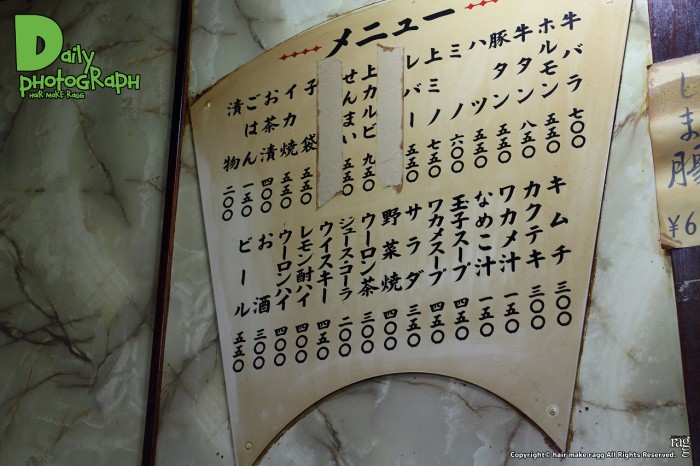 Daily
PHOTOGRAPH
HAIR MAKE RAGG
メニュー
牛バラ 七〇〇
ホルモン 五五〇
牛タン 八五〇
豚タン 五五〇
ハツ 五五〇
ミノ 六〇〇
上ミノ 七五〇
レバー 五五〇
上カルビ 九五〇
せんまい 五五〇
子袋 五五〇
イカ焼 五五〇
お茶漬 四〇〇
ごはん 一五〇
漬物 二〇〇
キムチ 三〇〇
カクテキ 三〇〇
ワカメ汁 一五〇
なめこ汁 一五〇
玉子スープ 四五〇
ワカメスープ 四五〇
サラダ 三五〇
野菜焼 四〇〇
ウーロン茶 三〇〇
ジュース・コーラ 二〇〇
ウイスキー 四五〇
レモン酎ハイ 四〇〇
ウーロンハイ 四〇〇
お酒 三〇〇
ビール 五五〇
しま腸
¥6
ragg
Copyright© hair make ragg All Rights Reserved.